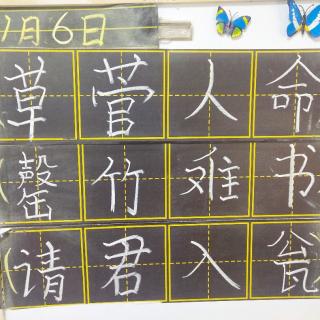 1月6日
(草菅人命
(罄竹难书
(请君入瓮